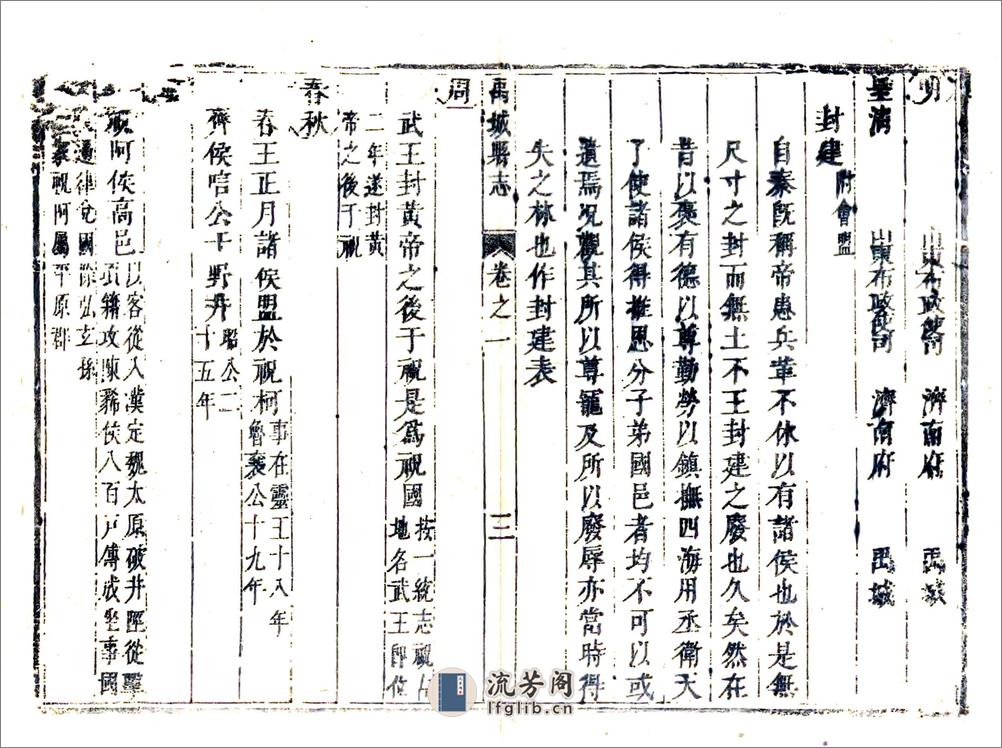 明 山東布政使司 濟南府 禹城
皇淸 山東布政使司 濟南府 禹城
封建 附會盟
自秦旣稱帝患兵革不休以有諸侯也於是無
尺寸之封而無土不王封建之廢也久矣然在
昔以襃有德以尊勤勞以鎮撫四海用丞衛天
子使諸侯得推恩分子弟國邑者均不可以或
遺焉况觀其所以尊寵及所以廢辱亦當時得
失之林也作封建表
禹城縣志 卷之一 三
周
武王封黃帝之後于祝是爲祝國 按一統志祝古
地名武王卽位
二年遂封黃
帝之後于祝
春秋
春王正月諸侯盟於祝柯 事在靈王十八年
魯襄公十九年
齊侯唁公于野井 昭公二
十五年
祝阿侯高邑 以客從入漢定魏太原破井陘從擊
項籍攻陳豨侯八百戶傳成坐事國
除弘玄孫
祝阿屬平原郡
流芳阁
lfglib.cn